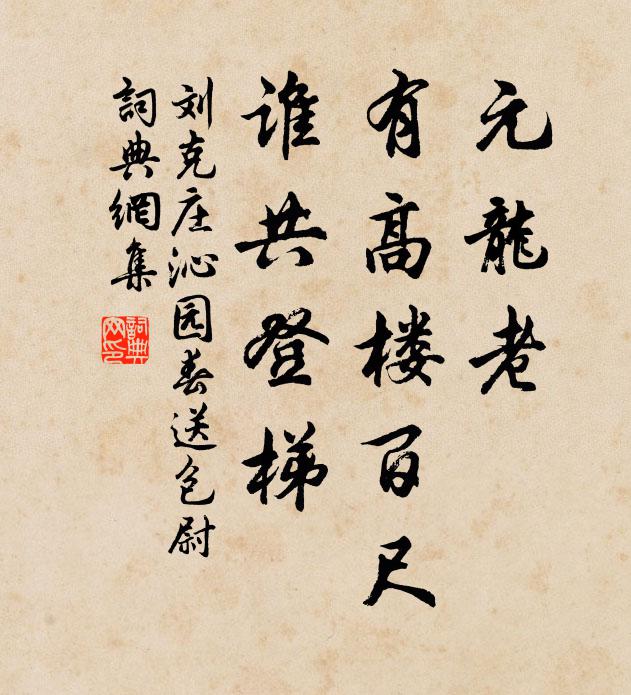 元龍老
有高楼百尺
谁共登梯
刘克庄沁园春送包尉
詞典網集
詞典
网印